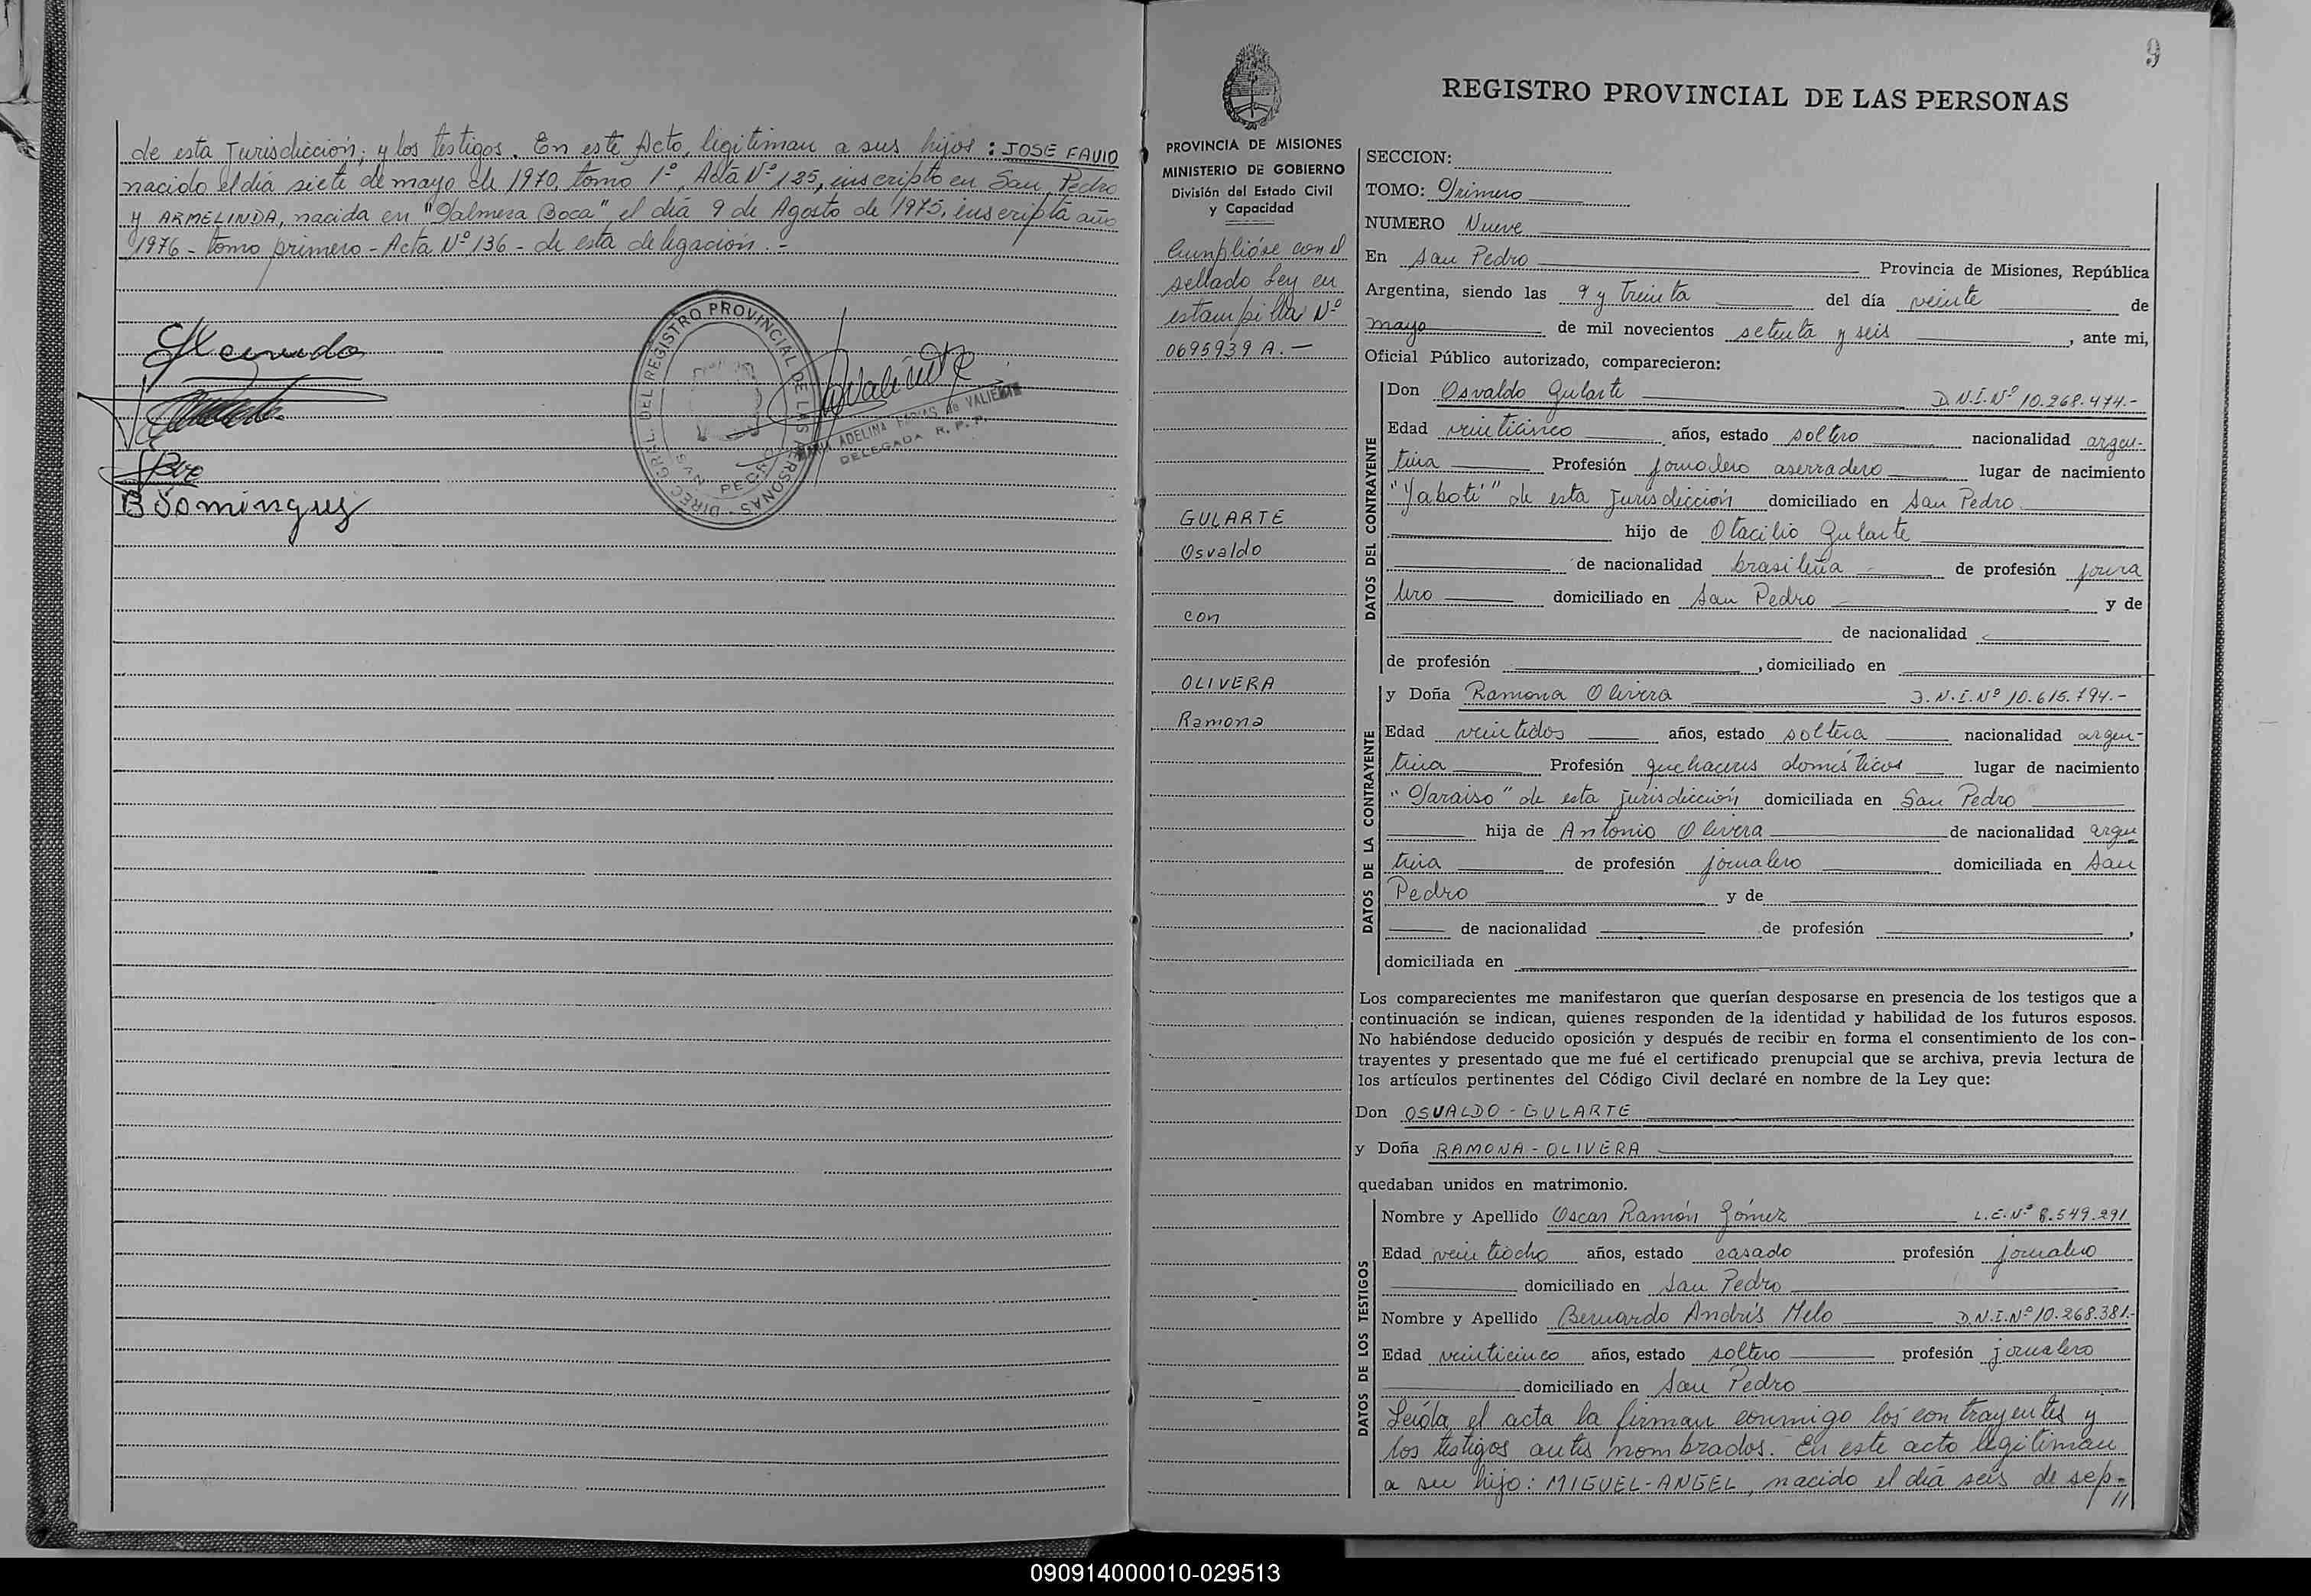 de esta Jurisdicción; y los testigos. En este Acto, legitiman a sus hijos: JOSE FAVIO
nacido el día siete de mayo de 1970, tomo 1º, Acta Nº 125, inscripto en San Pedro
y ARMELINDA, nacida en "Palmera Boca" el día 9 de Agosto de 1975, inscripta año
1976 - tomo primero - Acta Nº 136 - de esta delegación. -
DIREC. GRAL. DEL REGISTRO PROVINCIAL DE LAS PERSONAS
SAN PEDRO
MARIA ADELINA FARIAS de VALIENTE
DELEGADA R. P. P.
B Domingues
9
REGISTRO PROVINCIAL DE LAS PERSONAS
PROVINCIA DE MISIONES
MINISTERIO DE GOBIERNO
División del Estado Civil
y Capacidad
Cumplióse con el
sellado Ley en
estampilla Nº
0695939 A. -
GULARTE
Osvaldo
con
OLIVERA
Ramona
SECCION:
TOMO: Primero
NUMERO Nueve
En San Pedro Provincia de Misiones, República
Argentina, siendo las 9 y treinta del día veinte de
mayo de mil novecientos setenta y seis, ante mi,
Oficial Público autorizado, comparecieron:
DATOS DEL CONTRAYENTE
Don Osvaldo Gularte D.N.I. Nº 10.268.474.-
Edad veinticinco años, estado soltero nacionalidad argen-
tina Profesión jornalero aserradero lugar de nacimiento
"Yabotí" de esta Jurisdicción domiciliado en San Pedro
hijo de Otacilio Gularte
de nacionalidad brasileña de profesión jorna
lero domiciliado en San Pedro y de
de nacionalidad
de profesión , domiciliado en
DATOS DE LA CONTRAYENTE
y Doña Ramona Olivera D.N.I. Nº 10.615.794.-
Edad veintidos años, estado soltera nacionalidad argen-
tina Profesión quehaceres domésticos lugar de nacimiento
"Paraiso" de esta jurisdicción domiciliada en San Pedro
hija de Antonio Olivera de nacionalidad argen
tina de profesión jornalero domiciliada en San
Pedro y de
de nacionalidad de profesión ,
domiciliada en
Los comparecientes me manifestaron que querían desposarse en presencia de los testigos que a
continuación se indican, quienes responden de la identidad y habilidad de los futuros esposos.
No habiéndose deducido oposición y después de recibir en forma el consentimiento de los con-
trayentes y presentado que me fué el certificado prenupcial que se archiva, previa lectura de
los artículos pertinentes del Código Civil declaré en nombre de la Ley que:
Don OSVALDO - GULARTE
y Doña RAMONA - OLIVERA
quedaban unidos en matrimonio.
DATOS DE LOS TESTIGOS
Nombre y Apellido Oscar Ramón Gómez L.E. Nº 8.549.291
Edad veintiocho años, estado casado profesión jornalero
domiciliado en San Pedro
Nombre y Apellido Bernardo Andrés Melo D.N.I. Nº 10.268.381.-
Edad veinticinco años, estado soltero profesión jornalero
domiciliado en San Pedro
Leída el acta la firman conmigo los contrayentes y
los testigos antes nombrados. En este acto legitiman
a su hijo: MIGUEL-ANGEL, nacido el día seis de sep-
//
090914000010-029513